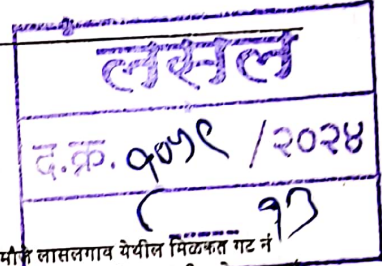 लसल
द.क्र. १०५९ /२०२४
८ १३
मौजे लासलगाव येथील मिळकत गट नं